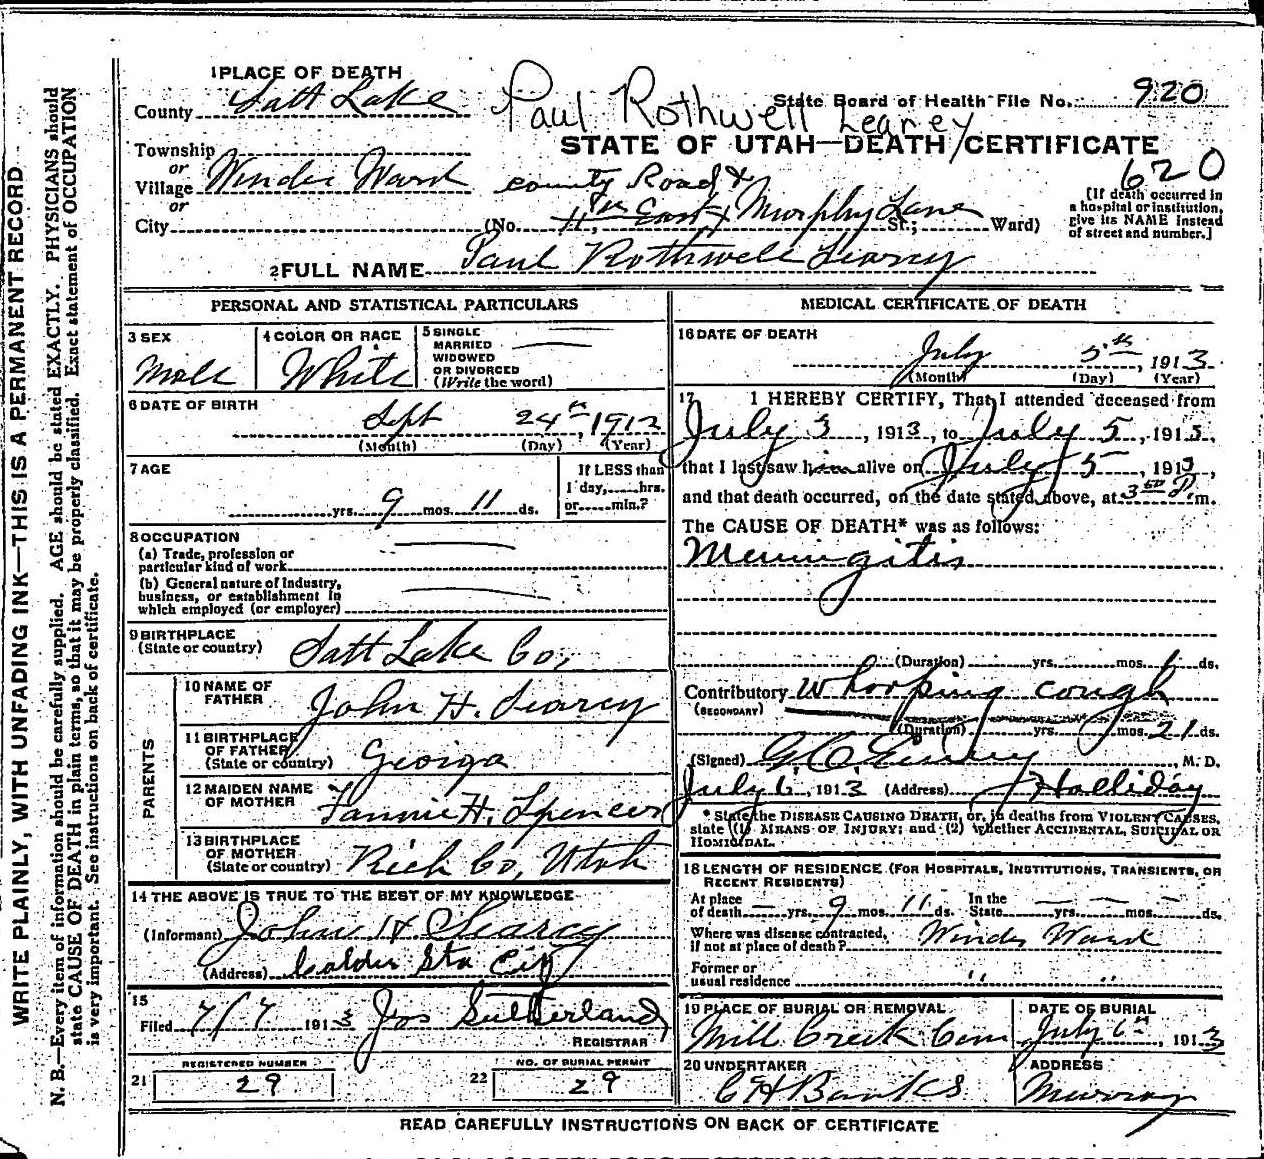 1 PLACE OF DEATH
County Salt Lake
Paul Rothwell Learey
State Board of Health File No. 920
STATE OF UTAH—DEATH CERTIFICATE
620
Township
or
Village Winder Ward
or
City
county Road &
(No. 11th East & Murphy Lane St.; Ward)
[If death occurred in
a hospital or institution,
give its NAME instead
of street and number.]
2 FULL NAME Paul Rothwell Searcy
WRITE PLAINLY, WITH UNFADING INK—THIS IS A PERMANENT RECORD
N. B.—Every item of information should be carefully supplied. AGE should be stated EXACTLY. PHYSICIANS should
state CAUSE OF DEATH in plain terms, so that it may be properly classified. Exact statement of OCCUPATION
is very important. See instructions on back of certificate.
PERSONAL AND STATISTICAL PARTICULARS
3 SEX
Male
4 COLOR OR RACE
White
5 SINGLE
MARRIED
WIDOWED
OR DIVORCED
(Write the word)
6 DATE OF BIRTH
Sept 24th, 1912
(Month) (Day) (Year)
7 AGE
yrs. 9 mos. 11 ds.
If LESS than
1 day, hrs.
or min.?
8 OCCUPATION
(a) Trade, profession or
particular kind of work
(b) General nature of industry,
business, or establishment in
which employed (or employer)
9 BIRTHPLACE
(State or country) Salt Lake Co,
PARENTS
10 NAME OF
FATHER John H. Searcy
11 BIRTHPLACE
OF FATHER
(State or country) Georiga
12 MAIDEN NAME
OF MOTHER Fannie H. Spencer
13 BIRTHPLACE
OF MOTHER
(State or country) Rich Co, Utah
14 THE ABOVE IS TRUE TO THE BEST OF MY KNOWLEDGE
(Informant) John H Searcy
(Address) Calder Sta City
15
Filed 7/7 1913 Jos Sutherland
REGISTRAR
REGISTERED NUMBER
21 29
NO. OF BURIAL PERMIT
22 29
MEDICAL CERTIFICATE OF DEATH
16 DATE OF DEATH
July 5th, 1913
(Month) (Day) (Year)
17 I HEREBY CERTIFY, That I attended deceased from
July 3, 1913, to July 5, 1913,
that I last saw him alive on July 5, 1913,
and that death occurred, on the date stated above, at 350 P.m.
The CAUSE OF DEATH* was as follows:
Meningitis
(Duration) yrs. mos. 6 ds.
Contributory Whooping cough
(SECONDARY)
(Duration) yrs. mos. 21 ds.
(Signed) , M. D.
July 6, 1913 (Address) Halliday
* State the DISEASE CAUSING DEATH, or, in deaths from VIOLENT CAUSES,
state (1) MEANS OF INJURY; and (2) whether ACCIDENTAL, SUICIDAL OR
HOMICIDAL.
18 LENGTH OF RESIDENCE (FOR HOSPITALS, INSTITUTIONS, TRANSIENTS, OR
RECENT RESIDENTS)
At place
of death — yrs. 9 mos. 11 ds.
In the
State — yrs. — mos. — ds.
Where was disease contracted,
if not at place of death? Winder Ward
Former or
usual residence " "
19 PLACE OF BURIAL OR REMOVAL
Mill Creek Cem
DATE OF BURIAL
July 6th, 1913
20 UNDERTAKER
C H Banks
ADDRESS
Murray
READ CAREFULLY INSTRUCTIONS ON BACK OF CERTIFICATE